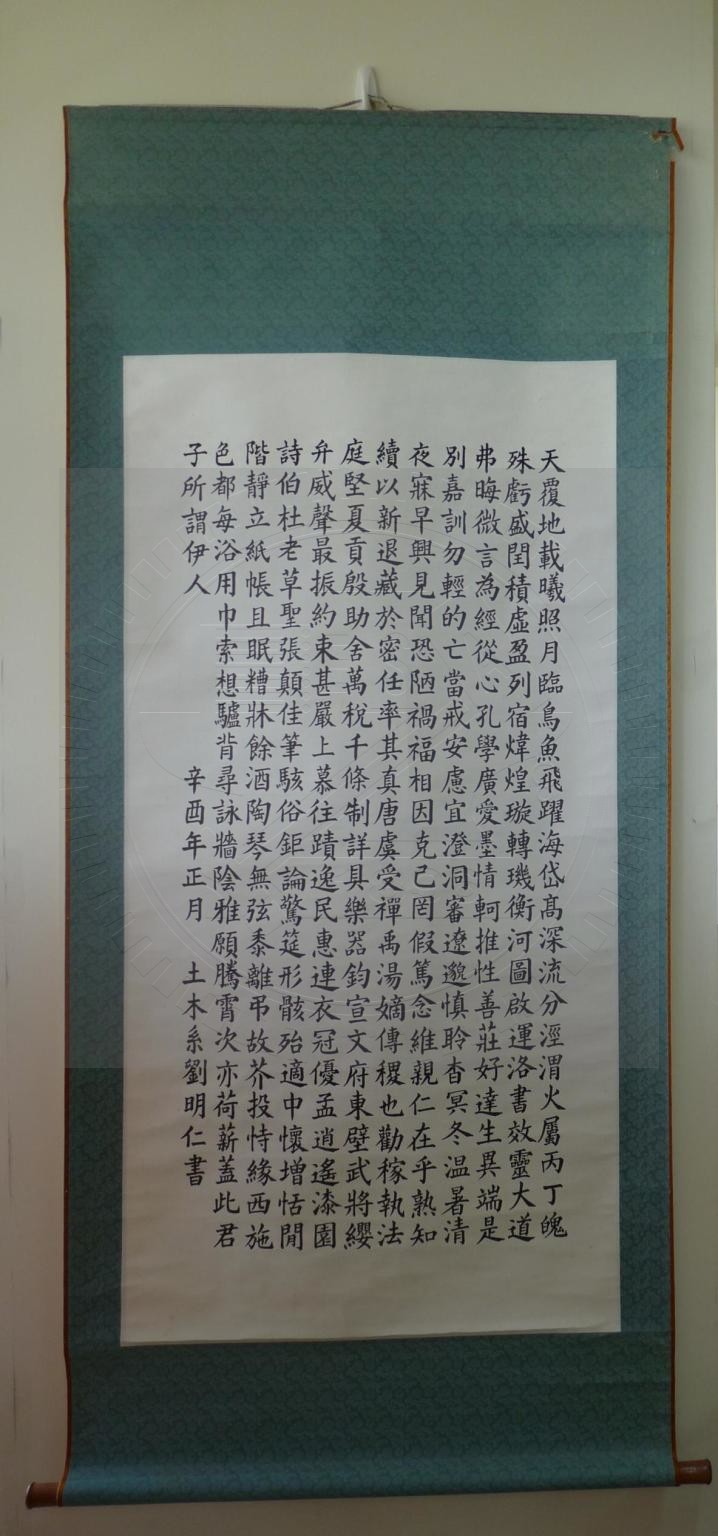 天覆地載曦照月臨鳥魚飛躍海岱高深流分涇渭火屬丙丁魄
殊虧盛閏積虛盈列宿煒煌璇轉璣衡河圖啟運洛書效靈大道
弗晦微言為經從心孔學廣愛墨情軻推性善莊好達生異端是
別嘉訓勿輕的亡當戒安慮宜澄洞審遼邈慎聆杳冥冬温暑清
夜寐早興見聞恐陋禍福相因克己罔假篤念維親仁在乎熟知
續以新退藏於密任率其真唐虞受禪禹湯嫡傳稷也勸稼執法
庭堅夏貢殷助舍萬稅千條制詳具樂器鈞宣文府東壁武將纓
弁威聲最振約束甚嚴上慕往蹟逸民惠連衣冠優孟逍遙漆園
詩伯杜老草聖張顛佳筆駭俗鉅論驚筵形骸殆適中懷增恬閒
階靜立紙帳且眠糟牀餘酒陶琴無弦黍離弔故芥投恃緣西施
色都每浴用巾索想驢背尋詠牆陰雅願騰霄次亦荷薪蓋此君
子所謂伊人 辛酉年正月 土木系劉明仁書